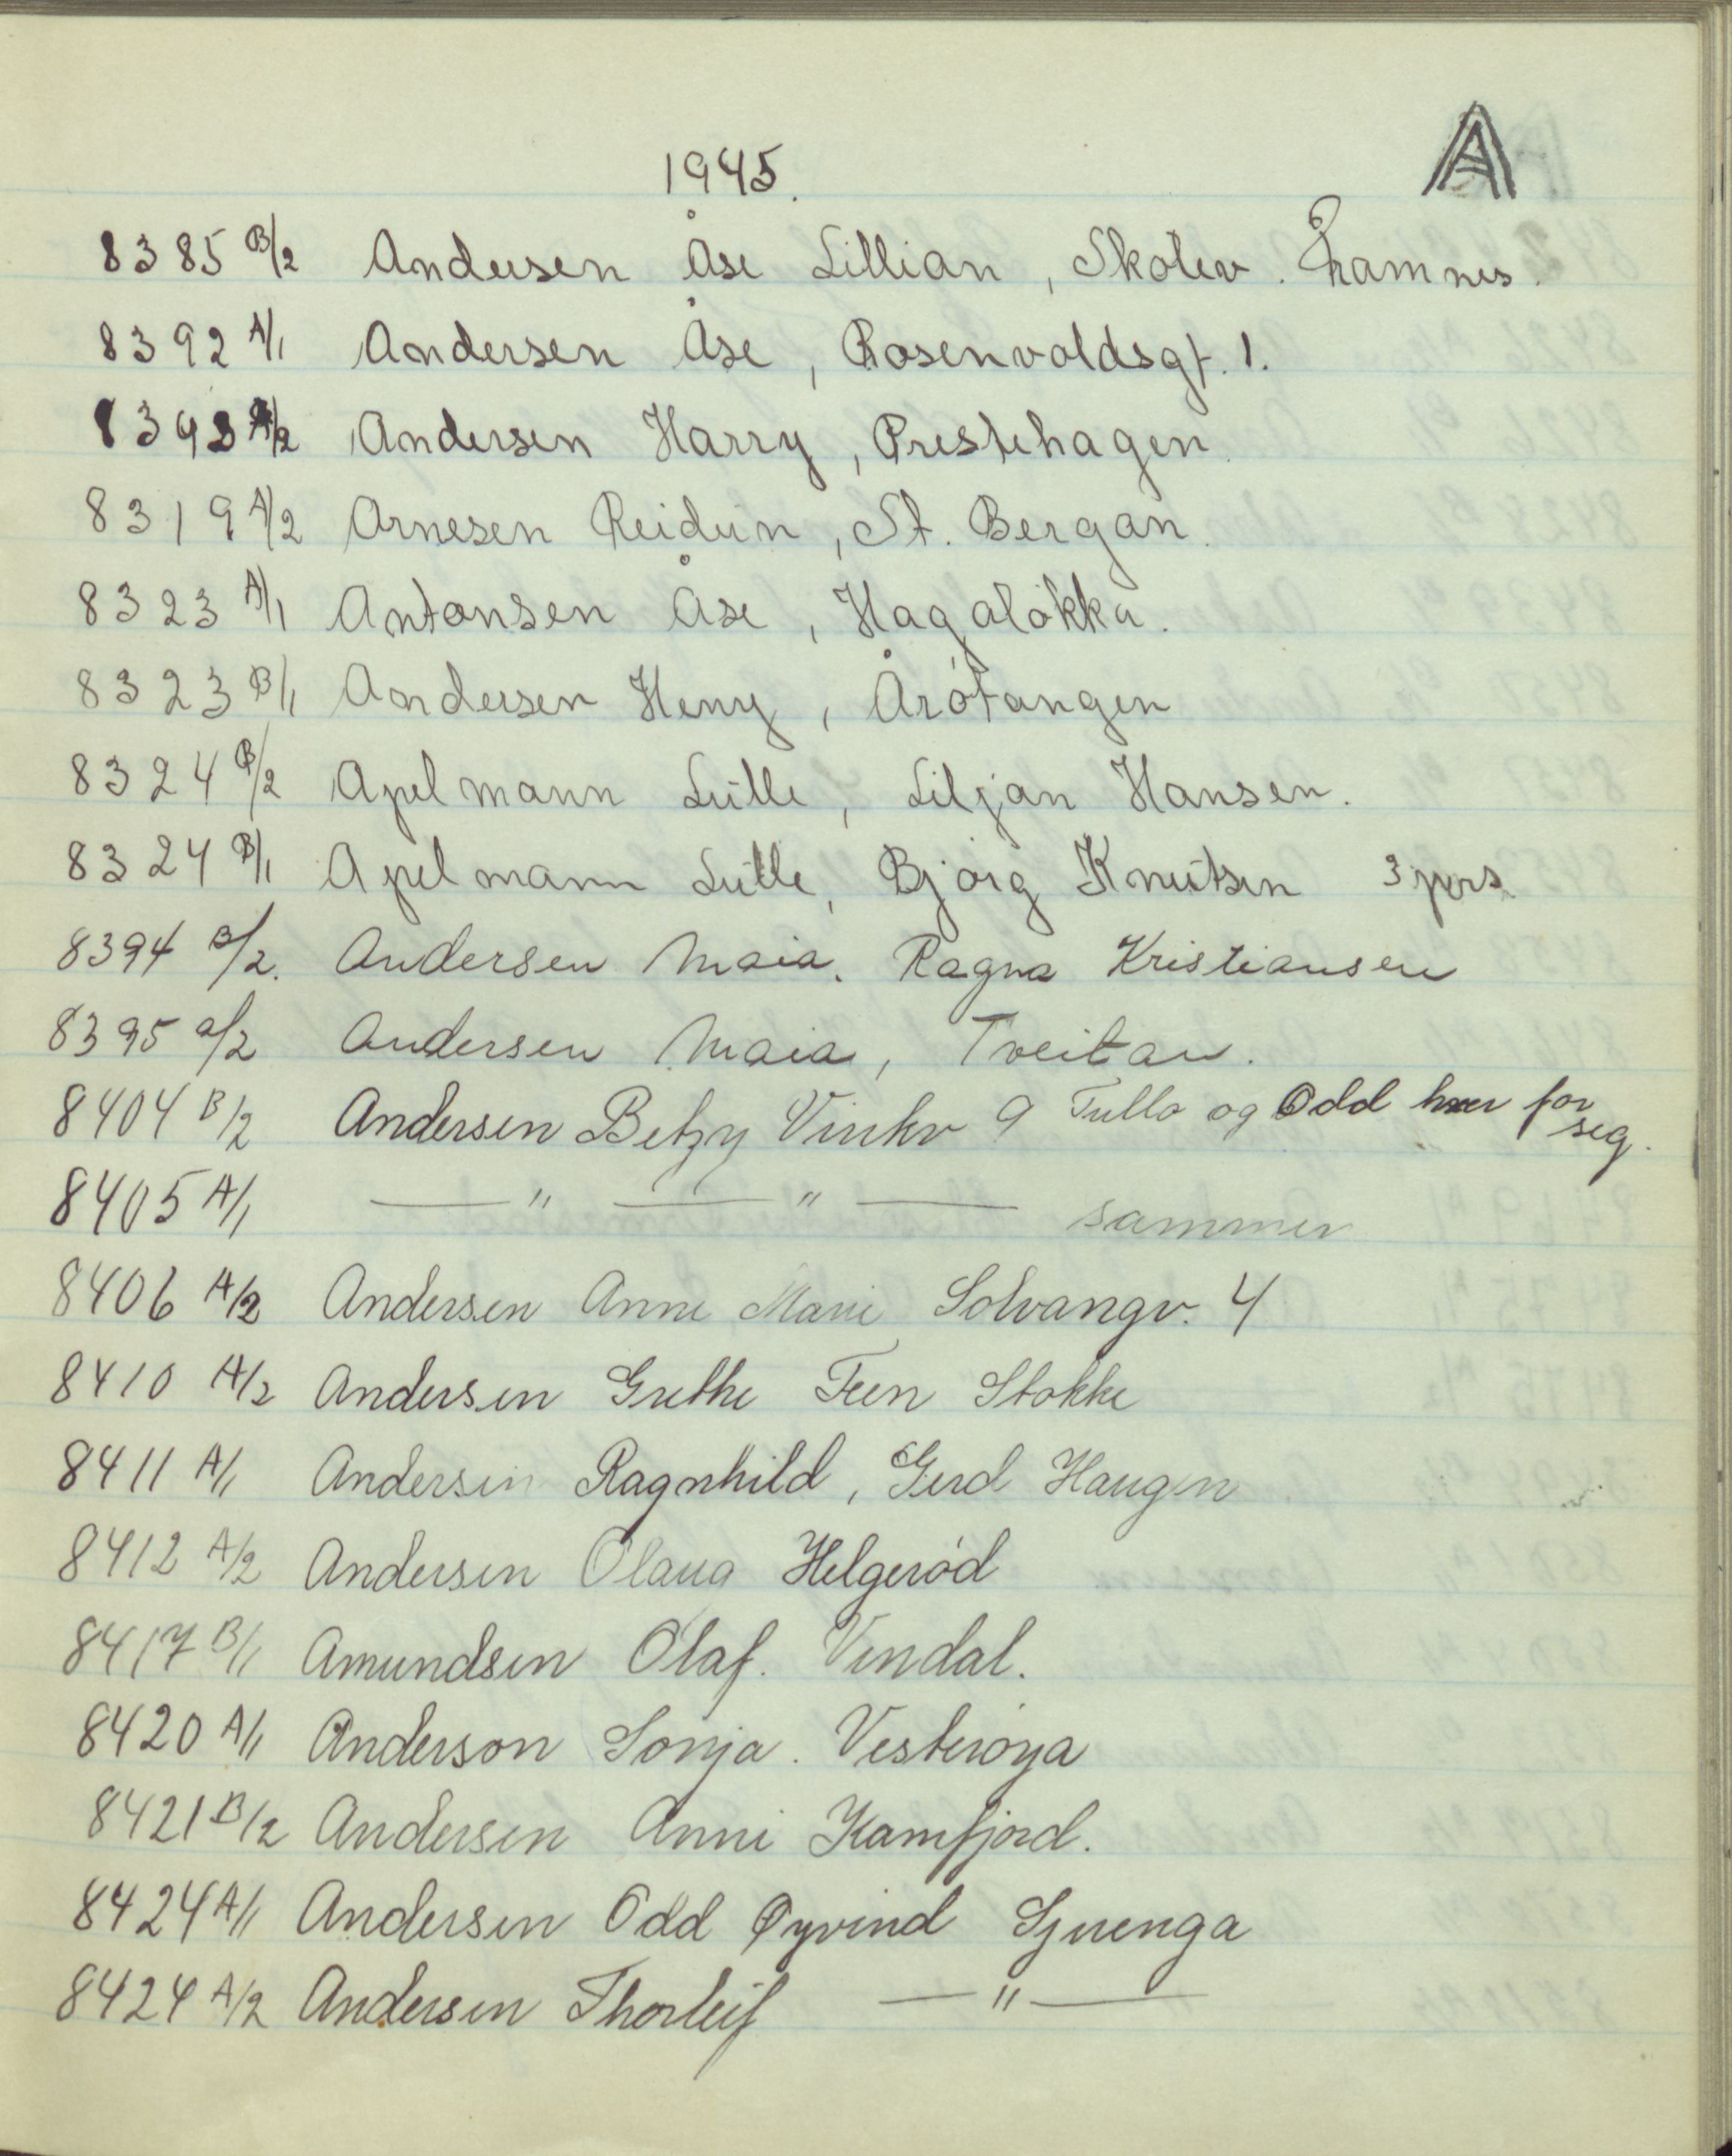 A
1945.
8385 B/2 Andersen Åse Lillian, Skolev. Framnes.
8392 A/1 Andersen Åse, Rosenvoldsgt. 1.
8393 A/2 Andersen Harry, Prestehagen.
8319 A/2 Arnesen Reidun, St. Bergan.
8323 A/1 Antonsen Åse, Hagaløkka.
8323 B/1 Andersen Heny, Årøtangen
8324 B/2 Apelmann Lulle, Liljan Hansen.
8324 B/1 Apelmann Lulle, Bjørg Knutsen 3 pers.
8394 B/2. Andersen Maia. Ragna Kristiansen
8395 a/2 Andersen Maia, Tveitan.
8404 B/2 Andersen Betzy Vinkv 9 Tulla og Odd hver for seg.
8405 A/1 — " — " — sammen
8406 A/2 Andersen Anne Marie Solvangv. 4
8410 A/2 Andersen Grethe Feen Stokke
8411 A/1 Andersen Ragnhild, Gerd Haugen
8412 A/2 Andersen Olaug Helgerød
8417 B/1 Amundsen Olaf. Vindal.
8420 A/1 Anderson Sonja. Vesterøya
8421 B/2 Andersen Anni Kamfjord.
8424 A/1 Andersen Odd Øyvind Sjuenga
8424 A/2 Andersen Thorleif — " —